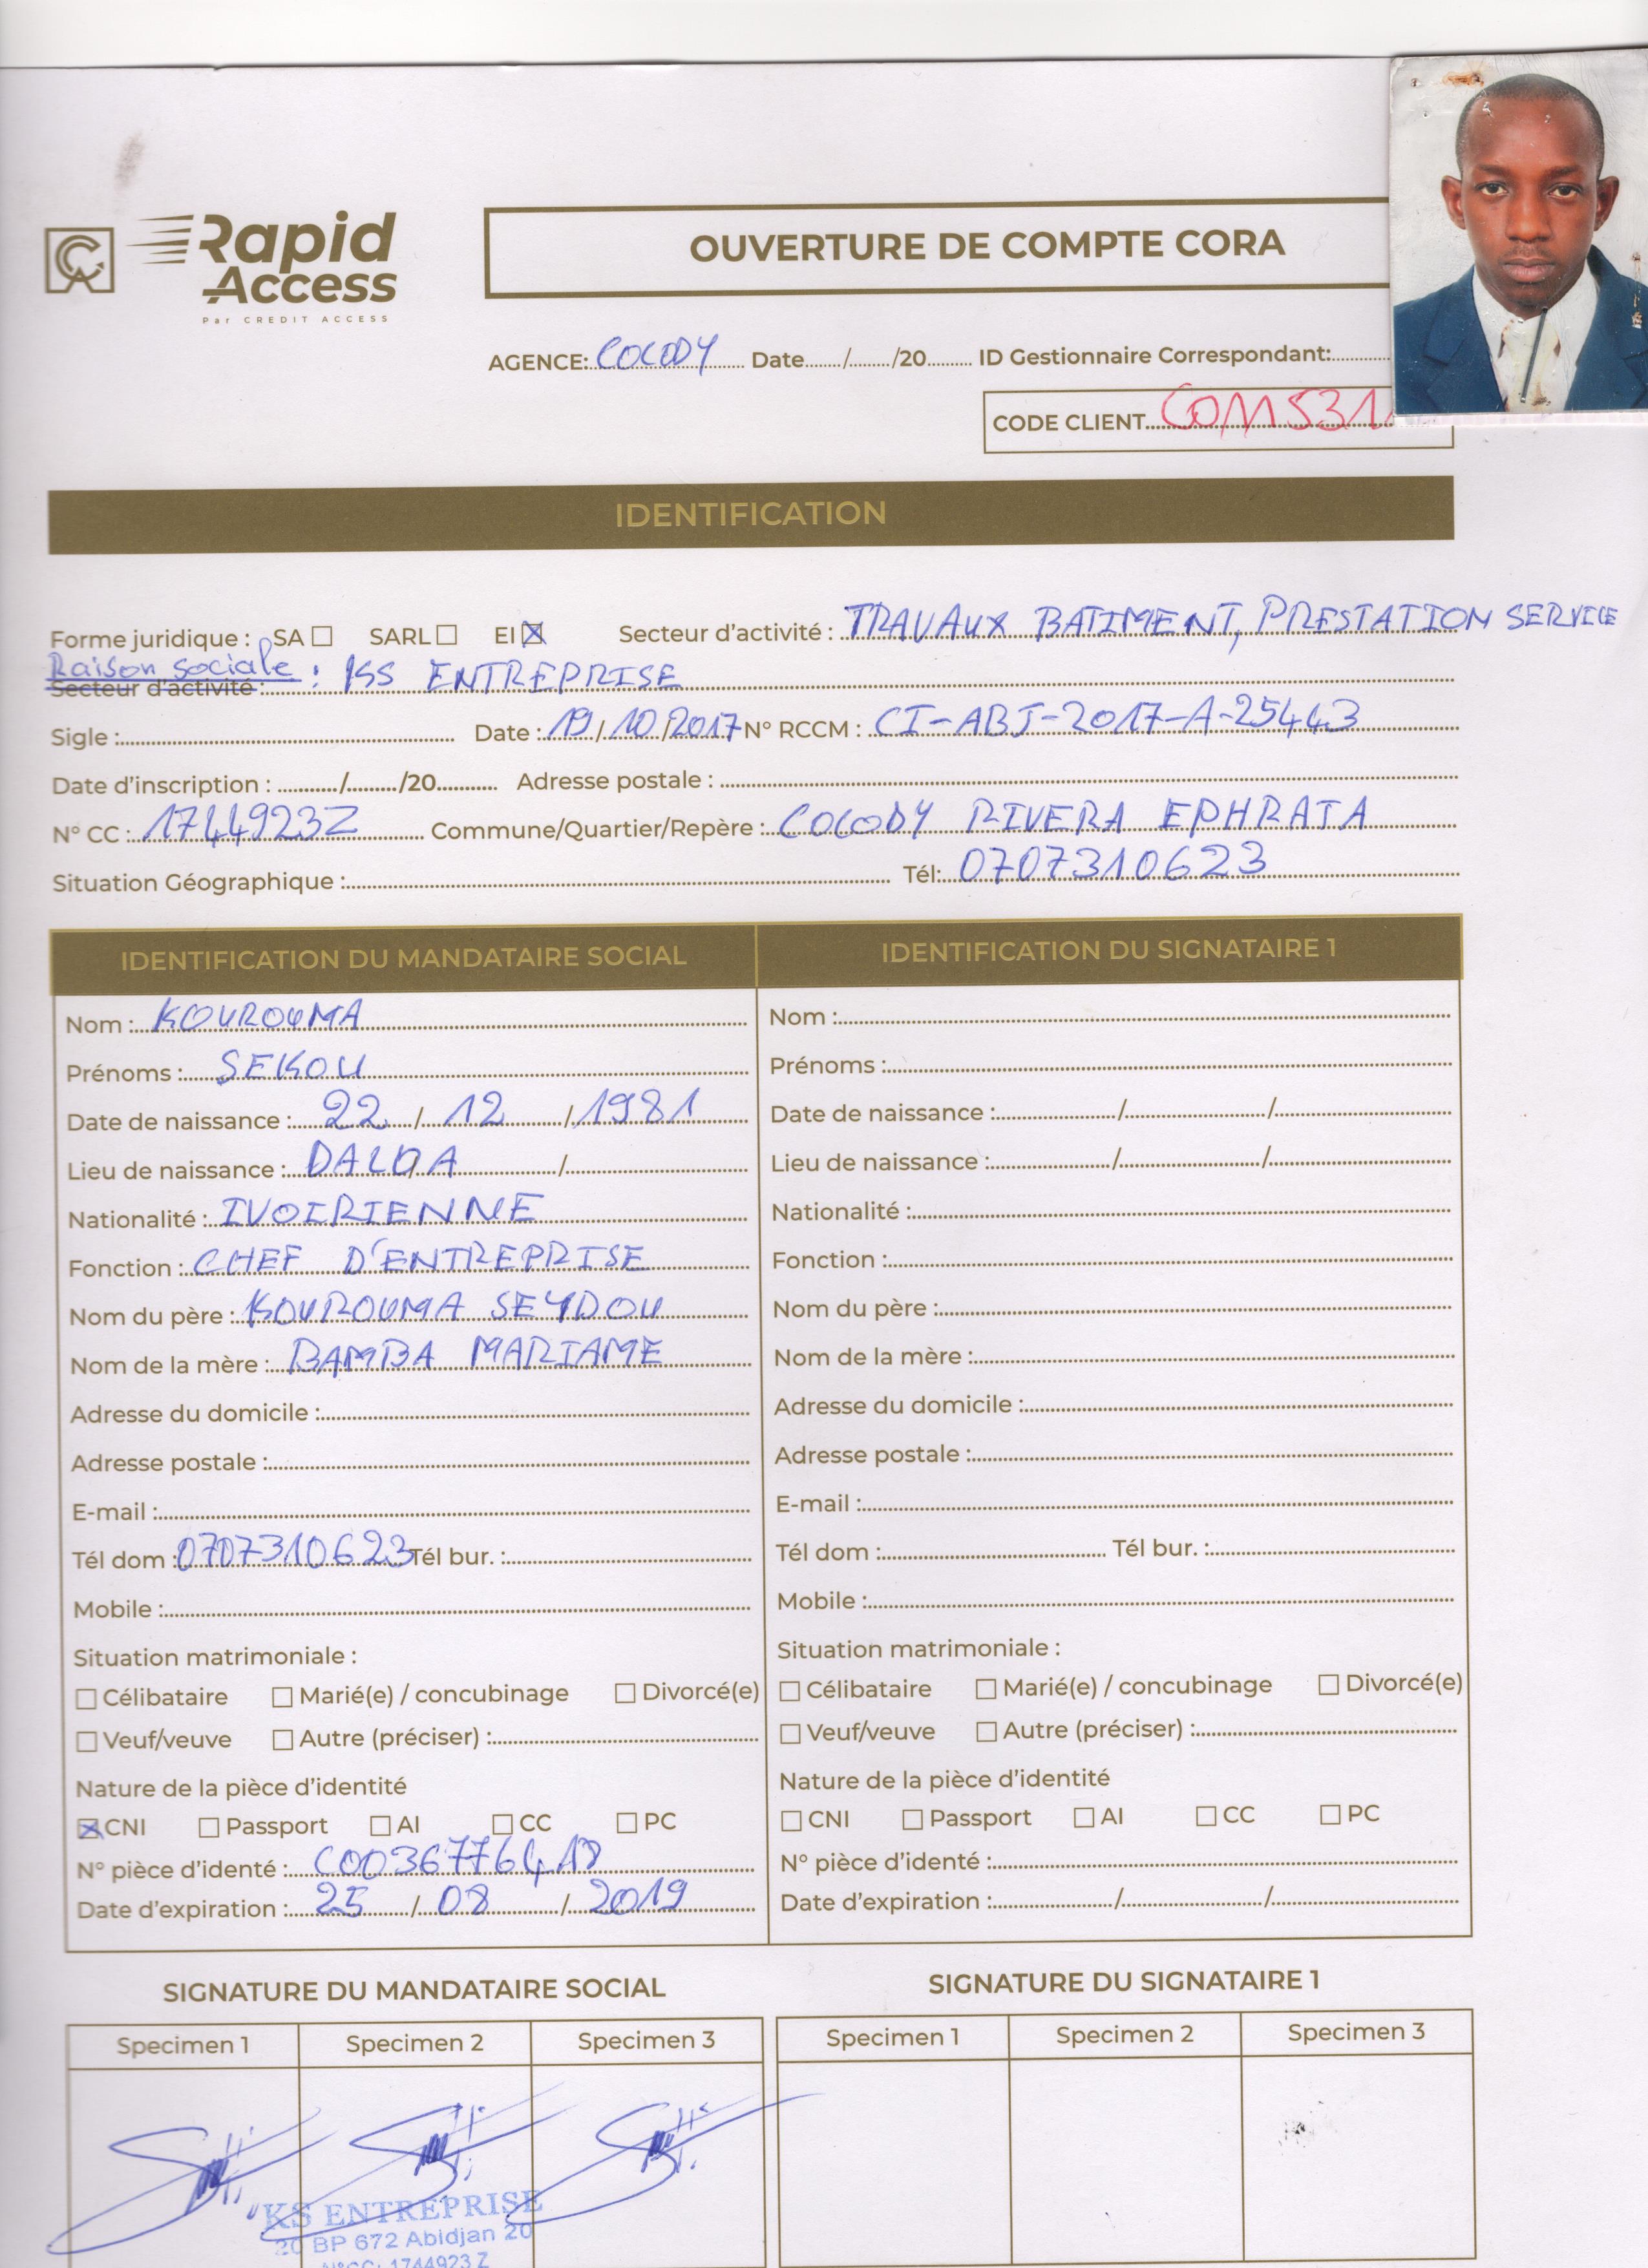 Rapid
Access
Par CREDIT ACCESS
OUVERTURE DE COMPTE CORA
AGENCE: COCODY Date....../......./20......... ID Gestionnaire Correspondant:............
CODE CLIENT
IDENTIFICATION
Forme juridique : SA ☐ SARL ☐ EI ☒ Secteur d'activité : TRAVAUX BATIMENT, PRESTATION SERVICE
Raison sociale : KS ENTREPRISE
Secteur d'activité :
Sigle : Date : 19/10/2017 N° RCCM : CI-ABJ-2017-A-25443
Date d'inscription : ........../........./20.......... Adresse postale :
N° CC : 1744923Z Commune/Quartier/Repère : COCODY RIVERA EPHRATA
Situation Géographique : Tél: 0707310623
IDENTIFICATION DU MANDATAIRE SOCIAL
Nom : KOUROUMA
Prénoms : SEKOU
Date de naissance : 22 / 12 / 1981
Lieu de naissance : DALOA /
Nationalité : IVOIRIENNE
Fonction : CHEF D'ENTREPRISE
Nom du père : KOUROUMA SEYDOU
Nom de la mère : BAMBA MARIAME
Adresse du domicile :
Adresse postale :
E-mail :
Tél dom : 0707310623 Tél bur. :
Mobile :
Situation matrimoniale :
☐ Célibataire ☐ Marié(e) / concubinage ☐ Divorcé(e)
☐ Veuf/veuve ☐ Autre (préciser) :
Nature de la pièce d'identité
☒ CNI ☐ Passport ☐ AI ☐ CC ☐ PC
N° pièce d'identé :
Date d'expiration : 25 / 08 / 2019
IDENTIFICATION DU SIGNATAIRE 1
Nom :
Prénoms :
Date de naissance : / /
Lieu de naissance : / /
Nationalité :
Fonction :
Nom du père :
Nom de la mère :
Adresse du domicile :
Adresse postale :
E-mail :
Tél dom : Tél bur. :
Mobile :
Situation matrimoniale :
☐ Célibataire ☐ Marié(e) / concubinage ☐ Divorcé(e)
☐ Veuf/veuve ☐ Autre (préciser) :
Nature de la pièce d'identité
☐ CNI ☐ Passport ☐ AI ☐ CC ☐ PC
N° pièce d'identé :
Date d'expiration : / /
SIGNATURE DU MANDATAIRE SOCIAL
Specimen 1 Specimen 2 Specimen 3
"KS ENTREPRISE
20 BP 672 Abidjan 20
N°CC: 1744923 Z
SIGNATURE DU SIGNATAIRE 1
Specimen 1 Specimen 2 Specimen 3